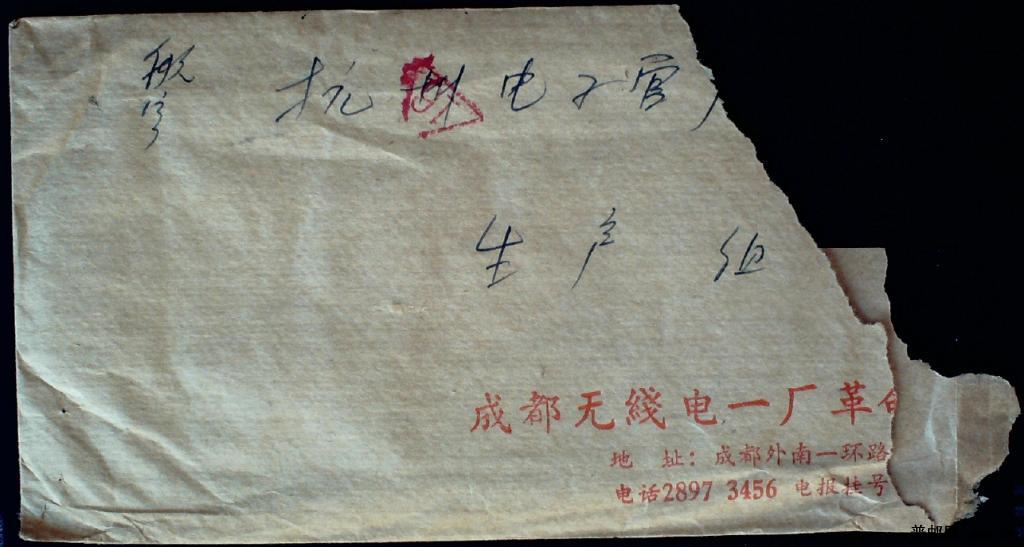 航空
杭州电子管厂
生产组
成都无线电一厂革
地 址：成都外南一环路
电话2897 3456 电报挂号
普邮